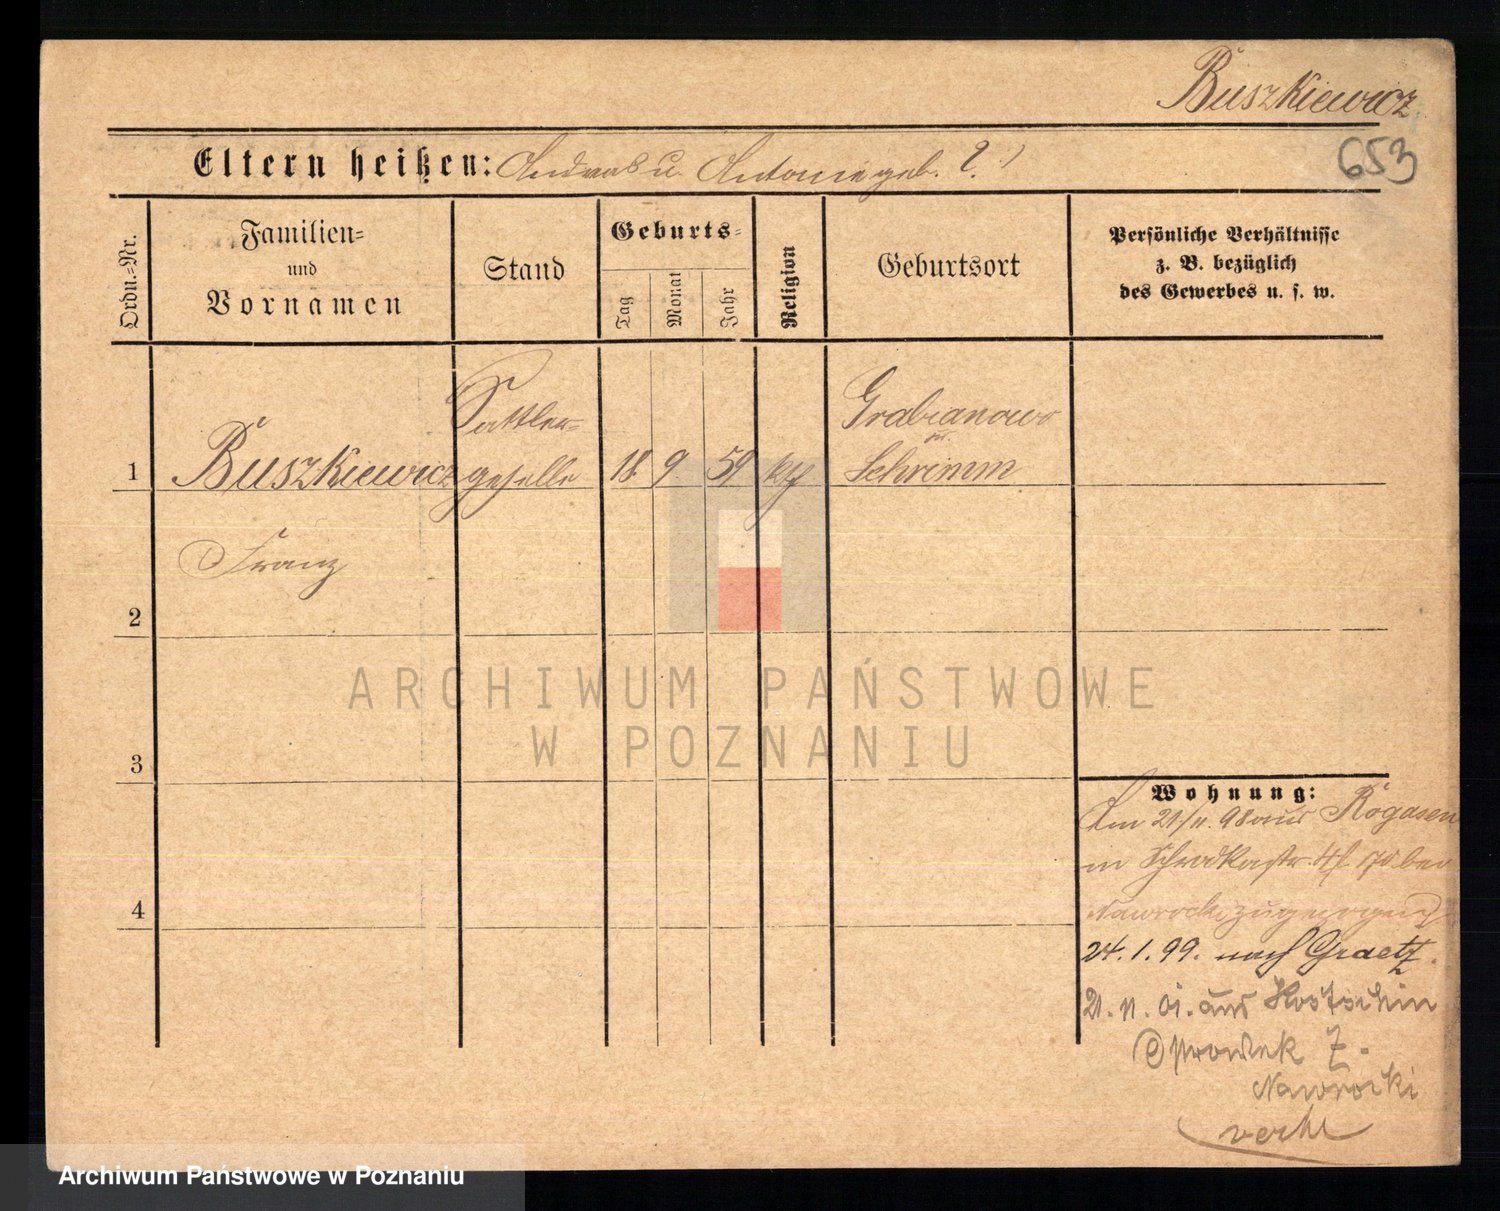 Buszkiewicz
653
Eltern heißen: Andreas u. Antonie geb. ?
Ordn.=Nr.
Familien=
und
Vornamen
Stand
Geburts=
Tag
Monat
Jahr
Religion
Geburtsort
Persönliche Verhältnisse
z. B. bezüglich
des Gewerbes u. s. w.
Sattler=
Grabianowo
1 Buszkiewicz geselle 18. 9. 59 Schrimm
Franz
2
ARCHIWUM PAŃSTWOWE
W POZNANIU
3
Wohnung:
21/11. 98 aus Rogasen
in
Nawrocki zugezogen
4
24. 1. 99. nach Graetz.
21. 11. 01. aus Kostschin
Nawrocki
Archiwum Państwowe w Poznaniu